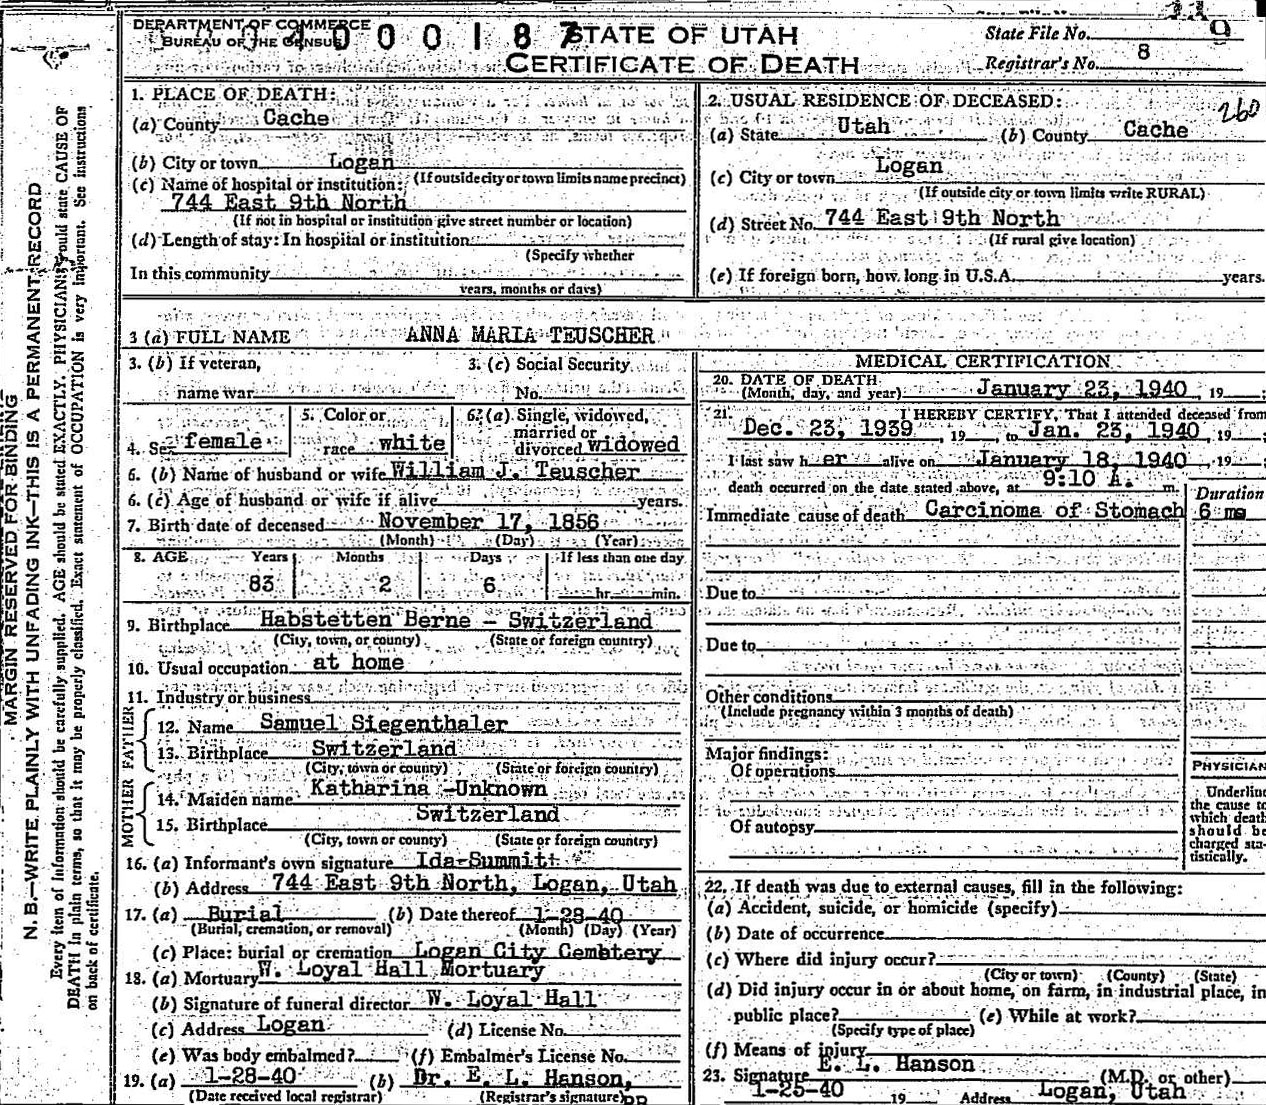 DEPARTMENT OF COMMERCE
BUREAU OF THE CENSUS
STATE OF UTAH
CERTIFICATE OF DEATH
State File No.
Registrar's No. 8
260
MARGIN RESERVED FOR BINDING
N. B.—WRITE PLAINLY WITH UNFADING INK—THIS IS A PERMANENT RECORD
Every item of information should be carefully supplied. AGE should be stated EXACTLY. PHYSICIANS should state CAUSE OF
DEATH in plain terms, so that it may be properly classified. Exact statement of OCCUPATION is very important. See instructions
on back of certificate.
1. PLACE OF DEATH:
(a) County Cache
(b) City or town Logan
(If outside city or town limits name precinct)
(c) Name of hospital or institution:
744 East 9th North
(If not in hospital or institution give street number or location)
(d) Length of stay: In hospital or institution
(Specify whether
In this community
years, months or days)
2. USUAL RESIDENCE OF DECEASED:
(a) State Utah (b) County Cache
(c) City or town Logan
(If outside city or town limits write RURAL)
(d) Street No. 744 East 9th North
(If rural give location)
(e) If foreign born, how long in U.S.A. years.
3 (a) FULL NAME ANNA MARIA TEUSCHER
3. (b) If veteran,
name war
3. (c) Social Security
No.
4. Sex female
5. Color or
race white
6. (a) Single, widowed,
married or
divorced widowed
6. (b) Name of husband or wife William J. Teuscher
6. (c) Age of husband or wife if alive years.
7. Birth date of deceased November 17, 1856
(Month) (Day) (Year)
8. AGE Years Months Days If less than one day
83 2 6 hr. min.
9. Birthplace Habstetten Berne - Switzerland
(City, town, or county) (State or foreign country)
10. Usual occupation at home
11. Industry or business
FATHER
12. Name Samuel Siegenthaler
13. Birthplace Switzerland
(City, town or county) (State or foreign country)
MOTHER
14. Maiden name Katharina -Unknown
15. Birthplace Switzerland
(City, town or county) (State or foreign country)
16. (a) Informant's own signature Ida Summitt
(b) Address 744 East 9th North, Logan, Utah
17. (a) Burial (b) Date thereof 1-28-40
(Burial, cremation, or removal) (Month) (Day) (Year)
(c) Place: burial or cremation Logan City Cemetery
18. (a) Mortuary W. Loyal Hall Mortuary
(b) Signature of funeral director W. Loyal Hall
(c) Address Logan (d) License No.
(e) Was body embalmed? (f) Embalmer's License No.
19. (a) 1-28-40 (b) Dr. E. L. Hanson,
(Date received local registrar) (Registrar's signature)
MEDICAL CERTIFICATION
20. DATE OF DEATH
(Month, day, and year) January 23, 1940, 19
21. I HEREBY CERTIFY, That I attended deceased from
Dec. 23, 1939, 19 , to Jan. 23, 1940, 19 ;
I last saw her alive on January 18, 1940, 19 ;
death occurred on the date stated above, at 9:10 A. m.
Duration
Immediate cause of death Carcinoma of Stomach 6 mo
Due to
Due to
Other conditions
(Include pregnancy within 3 months of death)
Major findings:
Of operations
Of autopsy
PHYSICIAN
Underline
the cause to
which death
should be
charged sta-
tistically.
22. If death was due to external causes, fill in the following:
(a) Accident, suicide, or homicide (specify)
(b) Date of occurrence
(c) Where did injury occur?
(City or town) (County) (State)
(d) Did injury occur in or about home, on farm, in industrial place, in
public place? (e) While at work?
(Specify type of place)
(f) Means of injury
23. Signature E. L. Hanson (M.D. or other)
1-25-40 19 Address Logan, Utah